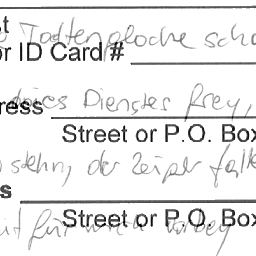 st
Todtenglocke scha
or ID Card #
eines Dienstes frey,
ress
Street or P.O. Box
stehn, der Zeiger falle
s
Street or P.O. Box
für mich vorbey